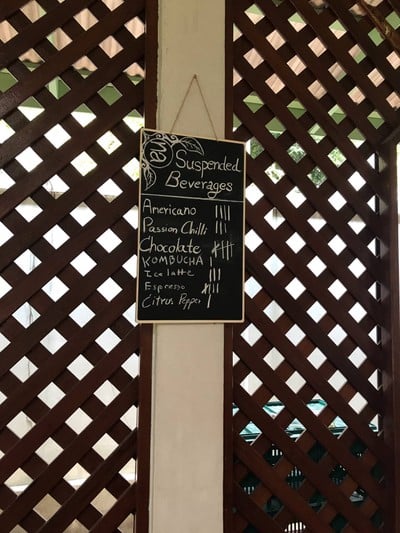 Suspended
Beverages
Americano ||||
Passion Chilli |||
Chocolate
KOMBUCHA |
Ice latte |||
Espresso
Citrus Pepper |